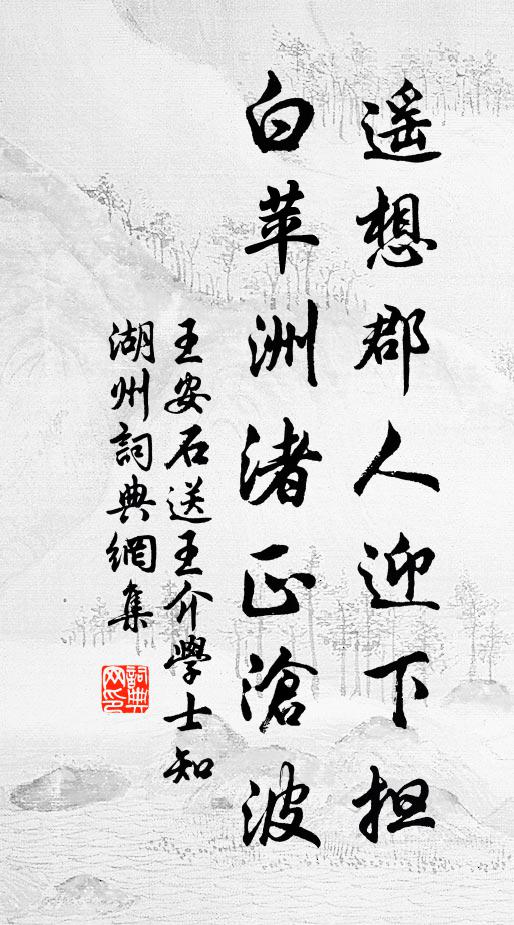 遥想郡人迎下担
白苹洲渚正滄波
王安石送王介學士知
湖州詞典網集
詞典网印